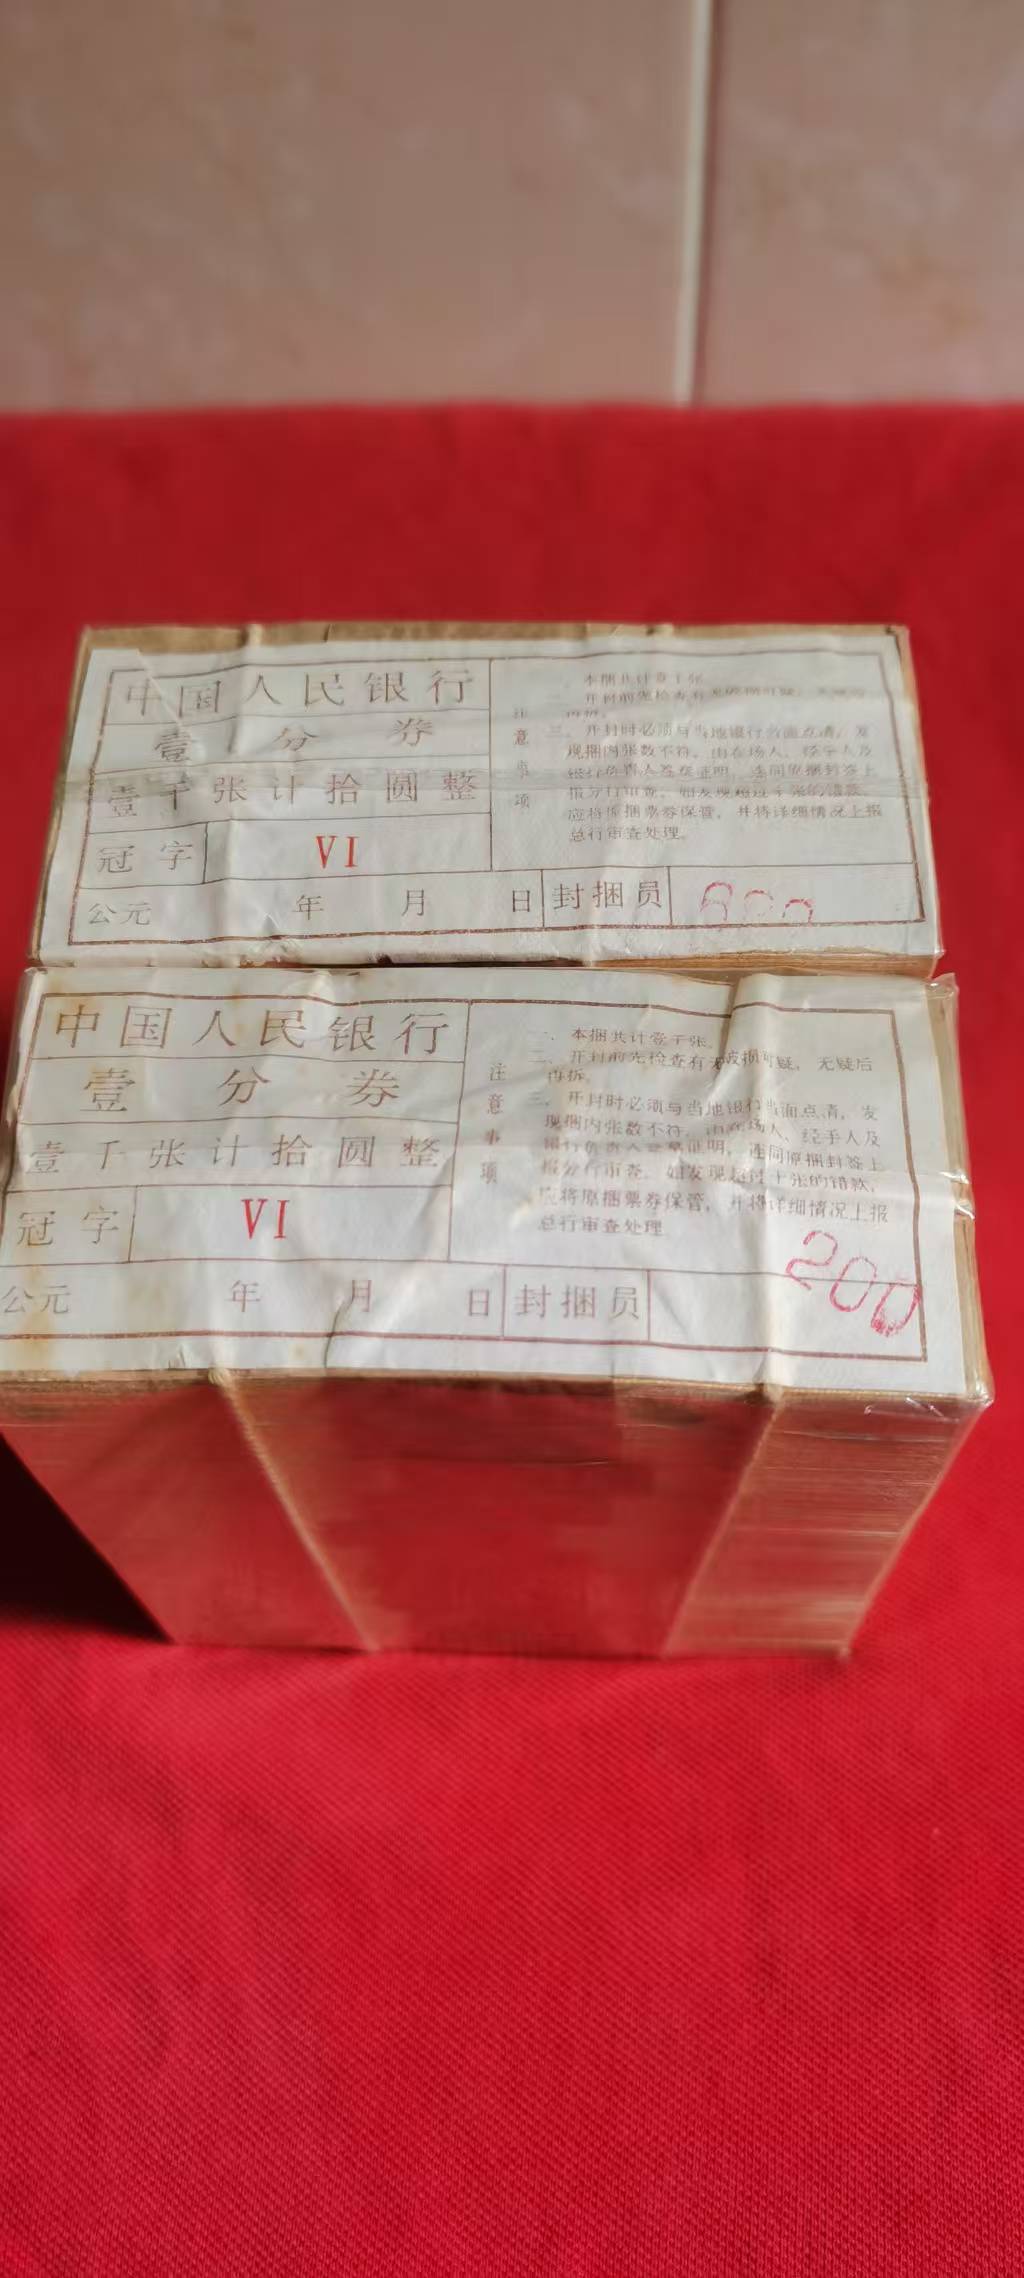 中国人民银行
壹分券
壹千张计拾圆整
冠字 VI
公元 年 月 日 封捆员
注意事项
本捆共计壹千张
开封前先检查有无破损可疑，无疑后
再拆。
三、开封时必须与当地银行当面点清，发
现捆内张数不符，由在场人、经手人及
银行负责人签章证明，连同原捆封签上
报分行审查，如发现超过十张的错款，
应将原捆票券保管，并将详细情况上报
总行审查处理。
中国人民银行
壹分券
壹千张计拾圆整
冠字 VI
公元 年 月 日 封捆员
注意事项
一、本捆共计壹千张。
二、开封前先检查有无破损可疑，无疑后
再拆。
三、开封时必须与当地银行当面点清，发
现捆内张数不符，由在场人、经手人及
银行负责人签章证明，连同原捆封签上
报分行审查，如发现超过十张的错款，
应将原捆票券保管，并将详细情况上报
总行审查处理
200